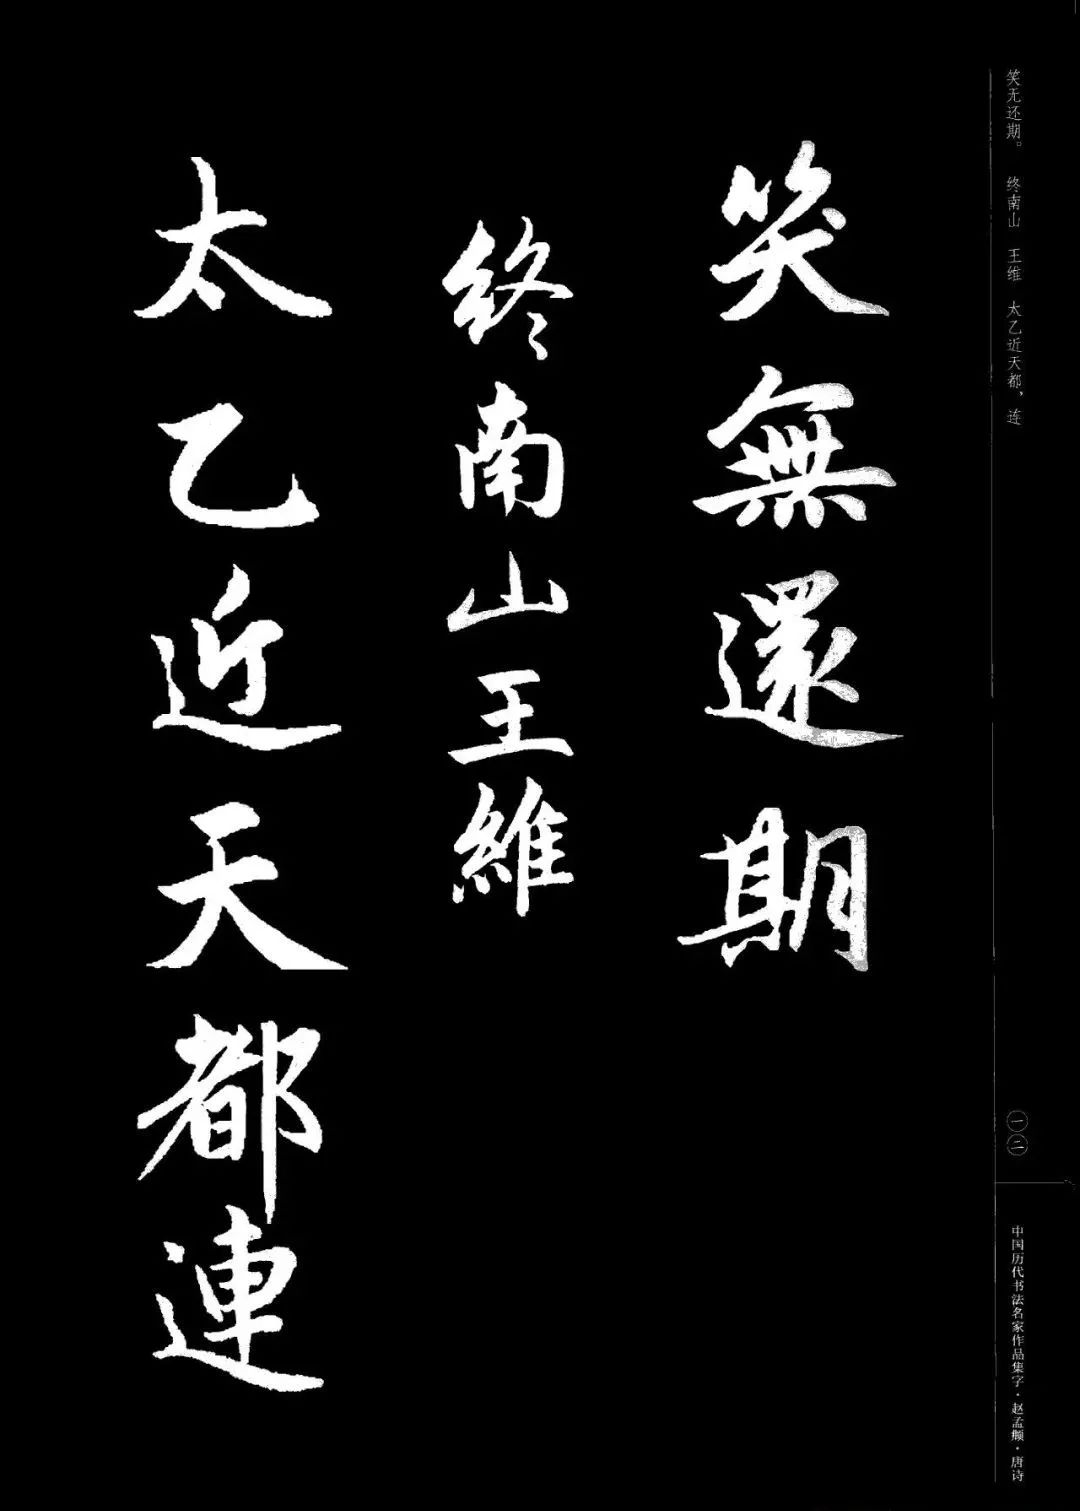 笑无还期。 终南山 王维 太乙近天都，连
笑無還期
終南山王維
太乙近天都連
一二
中国历代书法名家作品集字·赵孟頫·唐诗